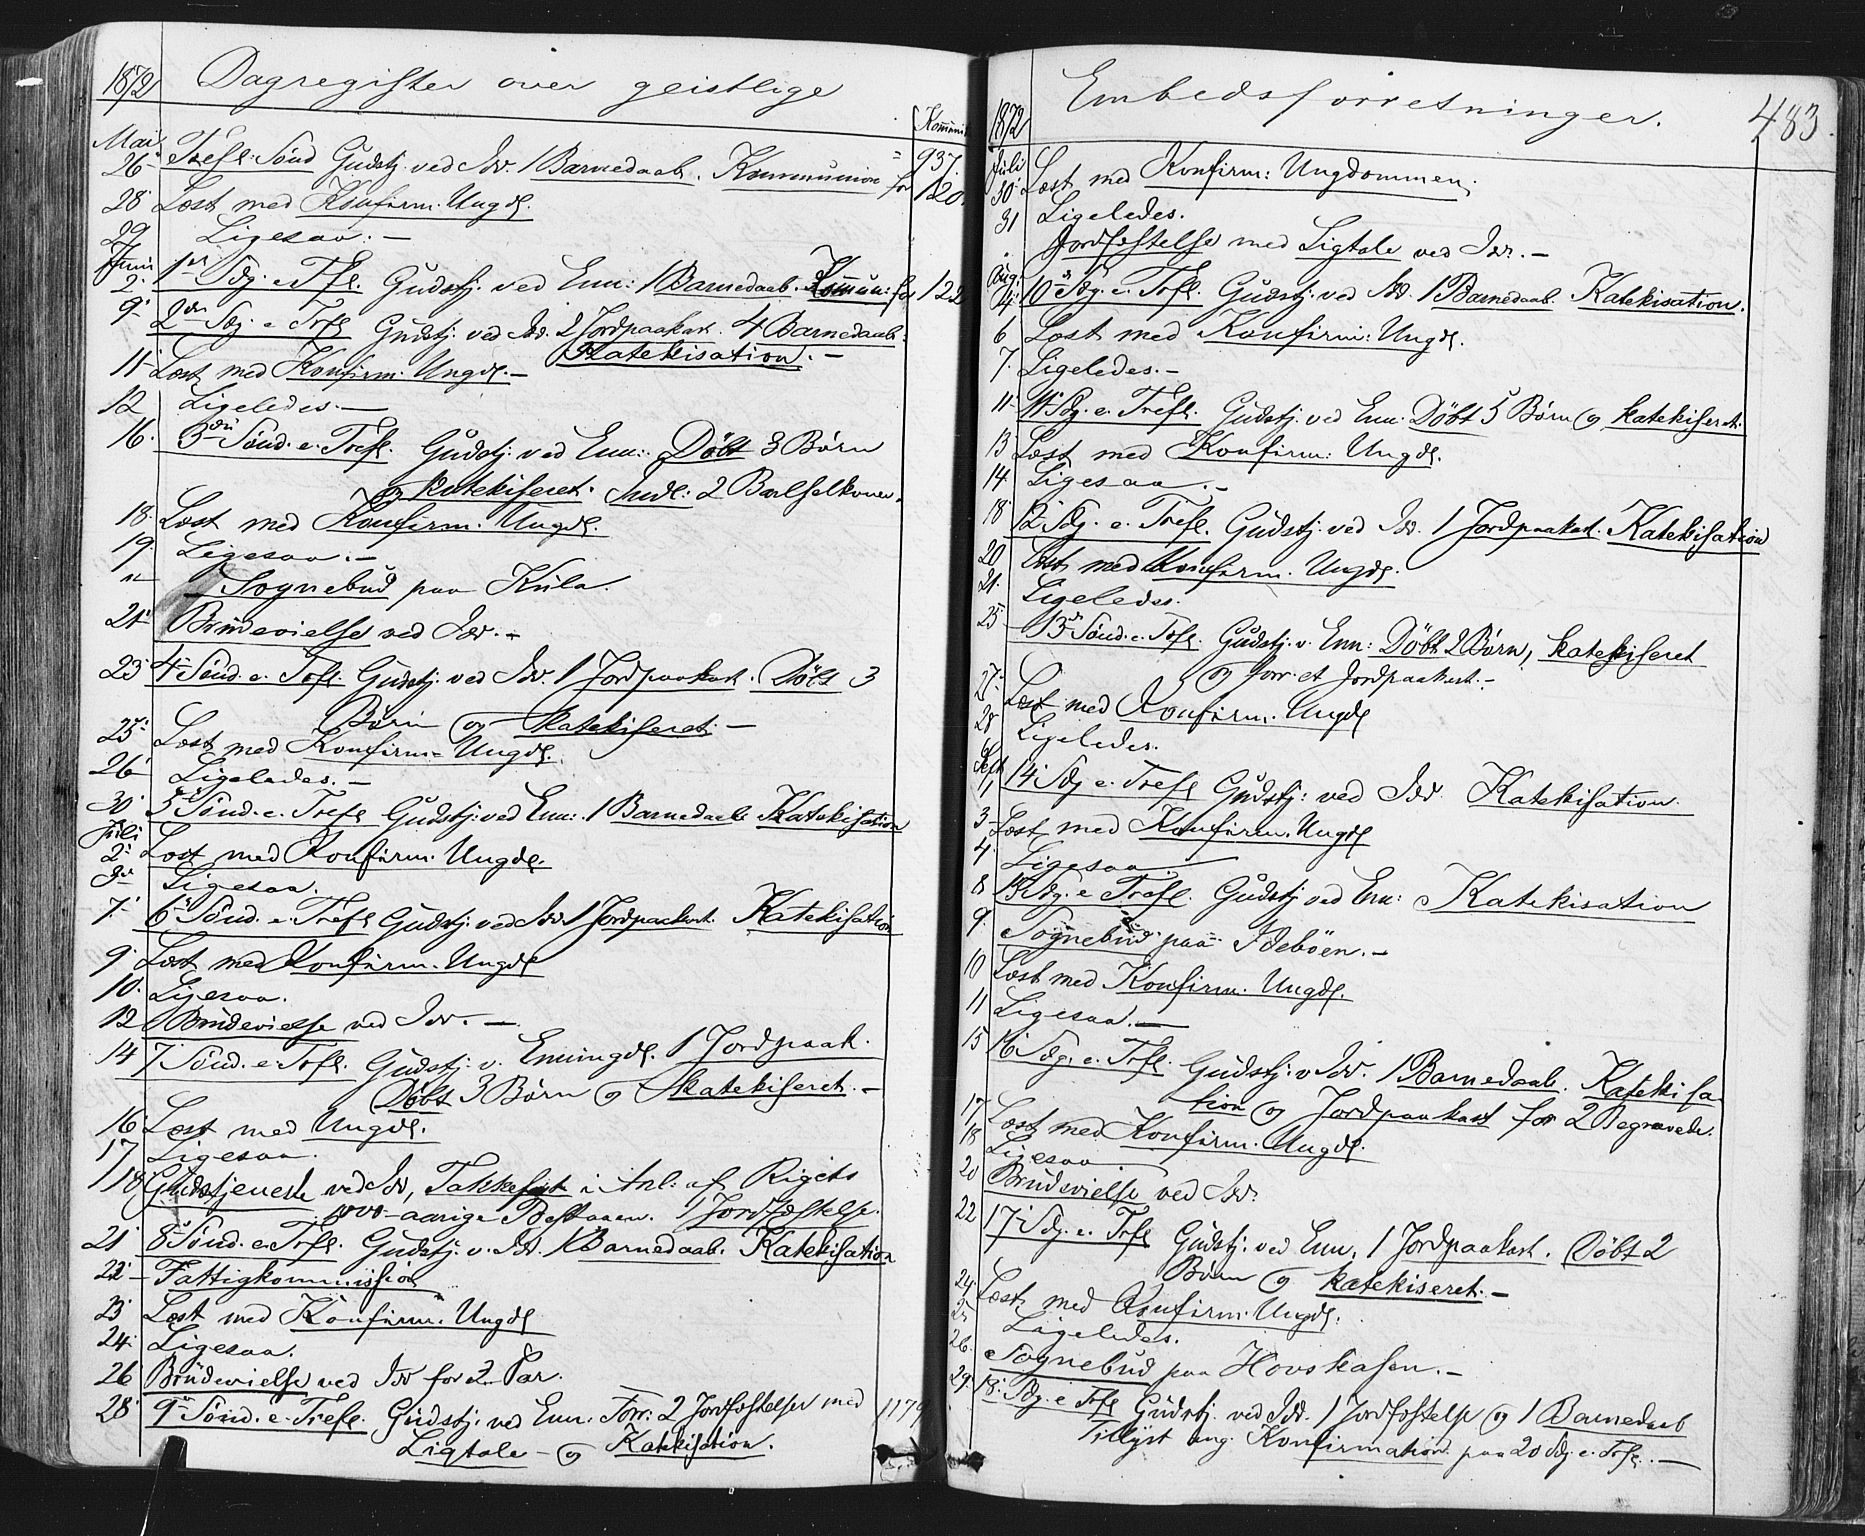 1872 Dagregister over geistlige
Kommunik
Mai
26 Trefl: Sönd Gudstj. ved Idd. 1 Barnedaab. Kommunion = 937.
for 120.
28 Læst med Konfirm. Ungd.
29 Ligesaa. —
Juni
2. 1ste Sdg. e. Tfl. Gudstj. ved Enn: 1 Barnedaab. Kommun: for 122
9. 2den Sdg. e. Trfl Gudstj. ved Idd. 2 Jordpaakast. 4 Barnedaab.
Katekisation. —
11. Læst med Konfirm. Ungd. —
12 Ligeledes. —
16. 3die Sönd. e. Trefl. Gudstj. ved Enn: Döbt 3 Börn
og katekiseret. Indl: 2 Barselkoner.
18. Læst med Konfirm. Ungd.
19. Ligesaa. —
" Sognebud paa Kula.
21. Brudevielse ved Idd. —
23 4. Sönd. e. Trfl. Gudstj. ved Idd. 1 Jordpaakast. Döbt 3
Börn og katekiseret. —
25. Læst med Konfirm. Ungd.
26 Ligeledes. —
30. 5 Sönd. e. Trefl Gudstj. ved Enn: 1 Barnedaab Katekisation
Juli
2. Læst med Konfirm. Ungd.
3. Ligesaa.
7. 6 Sönd. e. Trefl Gudstj. ved Idd 1 Jordpaakast. Katekisation
9. Læst med Konfirm. Ungd
10. Ligesaa.
12 Brudevielse ved Idd. —
14 7. Sönd. e. Trfl. Gudstj. v. Enningdl. 1 Jordpaak.
Döbt 3 Börn og katekiseret. —
16. Læst med Ungd.
17 Ligesaa.
18 Gudstjeneste ved Idd, Takkefest i Anl: af Rigets
1000-aarige Bestaaen. 1 Jordfæstelse.
21 8 Sönd. e. Trfl. Gudstj. v. Idd. 1 Barnedaab. Katekisation
22. — Fattigkommission
23. Læst med Konfirm. Ungd
24. Ligesaa.
26 Brudevielse ved Idd for 2 Par.
28. 9. Sönd. e. Trefl. Gudstj. ved Enn: Forr: 2 Jordfæstelser med 1179
Ligtale — og Katekisation.
1872 Embedsforretninger. 483.
Juli
30. Læst med Konfirm: Ungdommen.
31 Ligeledes.
" Jordfæstelse med Ligtale ved Idd. —
Aug.
4. 10. Sdg. e. Trfl. Gudstj. ved Idd. 1 Barnedaab. Katekisation.
6. Læst med Konfirm: Ungd.
7. Ligeledes. —
11. 11. Sdg. e. Trefl. Gudstj. ved Enn: Döbt 5 Börn og katekiseret.
13 Læst med Konfirm: Ungd.
14. Ligesaa. —
18. 12. Sdg. e. Trefl. Gudstj. ved Idd. 1 Jordpaakast. Katekisation
20 Læst med Konfirm. Ungd.
21. Ligeledes.
25. 13. Sönd. e. Trfl. Gudstj. v. Enn: Döbt 2 Börn, katekiseret
og forr. et Jordpaakast. —
27. Læst med Konfirm. Ungd
28 Ligeledes.
Sept
1. 14. Sdg e. Trefl Gudstj: ved Idd. Katekisation.
3. Læst med Konfirm. Ungd
4. Ligesaa.
8 15 Sdg. e Trefl. Gudstj ved Enn: Katekisation
9. Sognebud paa Ideböen. —
10 Læst med Konfirm. Ungd.
11 Ligesaa. —
15 16. Sdg. e. Trfl. Gudstj. v Idd. 1 Barnedaab. Katekisa
tion og Jordpaakast for 2 Begravede.
17. Læst med Konfirm. Ungd.
18 Ligesaa.
20 Brudevielse ved Idd.
22 17. Sdg. e. Trfl Gudstj. ved Enn, 1 Jordpaakast. Döbt 2
Börn og katekiseret. —
24. Læst med Konfirm. Ungd.
25 Ligeledes.
26. Sognebud paa Hovskasen. —
29. 18. Sdg. e Trfl Gudstj. ved Idd. 1 Jordfæstelse og 1 Barnedaab
Tillyst ang. Konfirmation paa 20 Sdg. e. Trfl. —